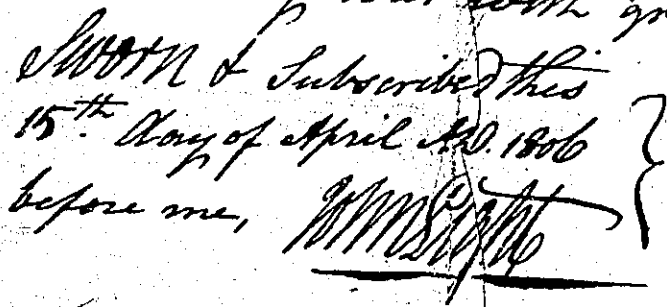 Sworn & Subscribed this
15th day of April AD. 1806
before me,